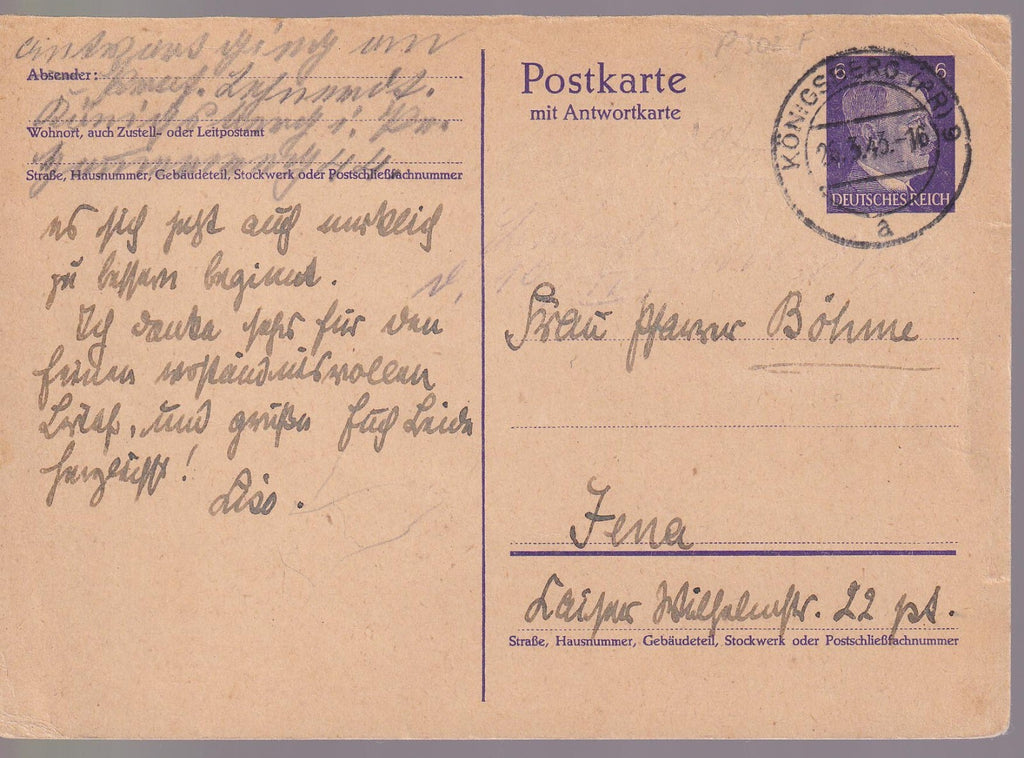 P 302 F
Antwort ging an
Absender:
Prof. Lehnerdt.
Königsberg i. Pr.
Wohnort, auch Zustell- oder Leitpostamt
Straße, Hausnummer, Gebäudeteil, Stockwerk oder Postschließfachnummer
es sich jetzt auch wirklich
zu bessern beginnt.
Ich danke sehr für den
feinen verständnisvollen
Brief, und grüße Euch Beide
herzlichst!
Liso.
Postkarte
mit Antwortkarte
6 6
DEUTSCHES REICH
KÖNIGSBERG (PR) 9
.3.43.-16
a
Frau Pfarrer Böhme
Jena
Kaiser Wilhelmstr. 22 pt.
Straße, Hausnummer, Gebäudeteil, Stockwerk oder Postschließfachnummer